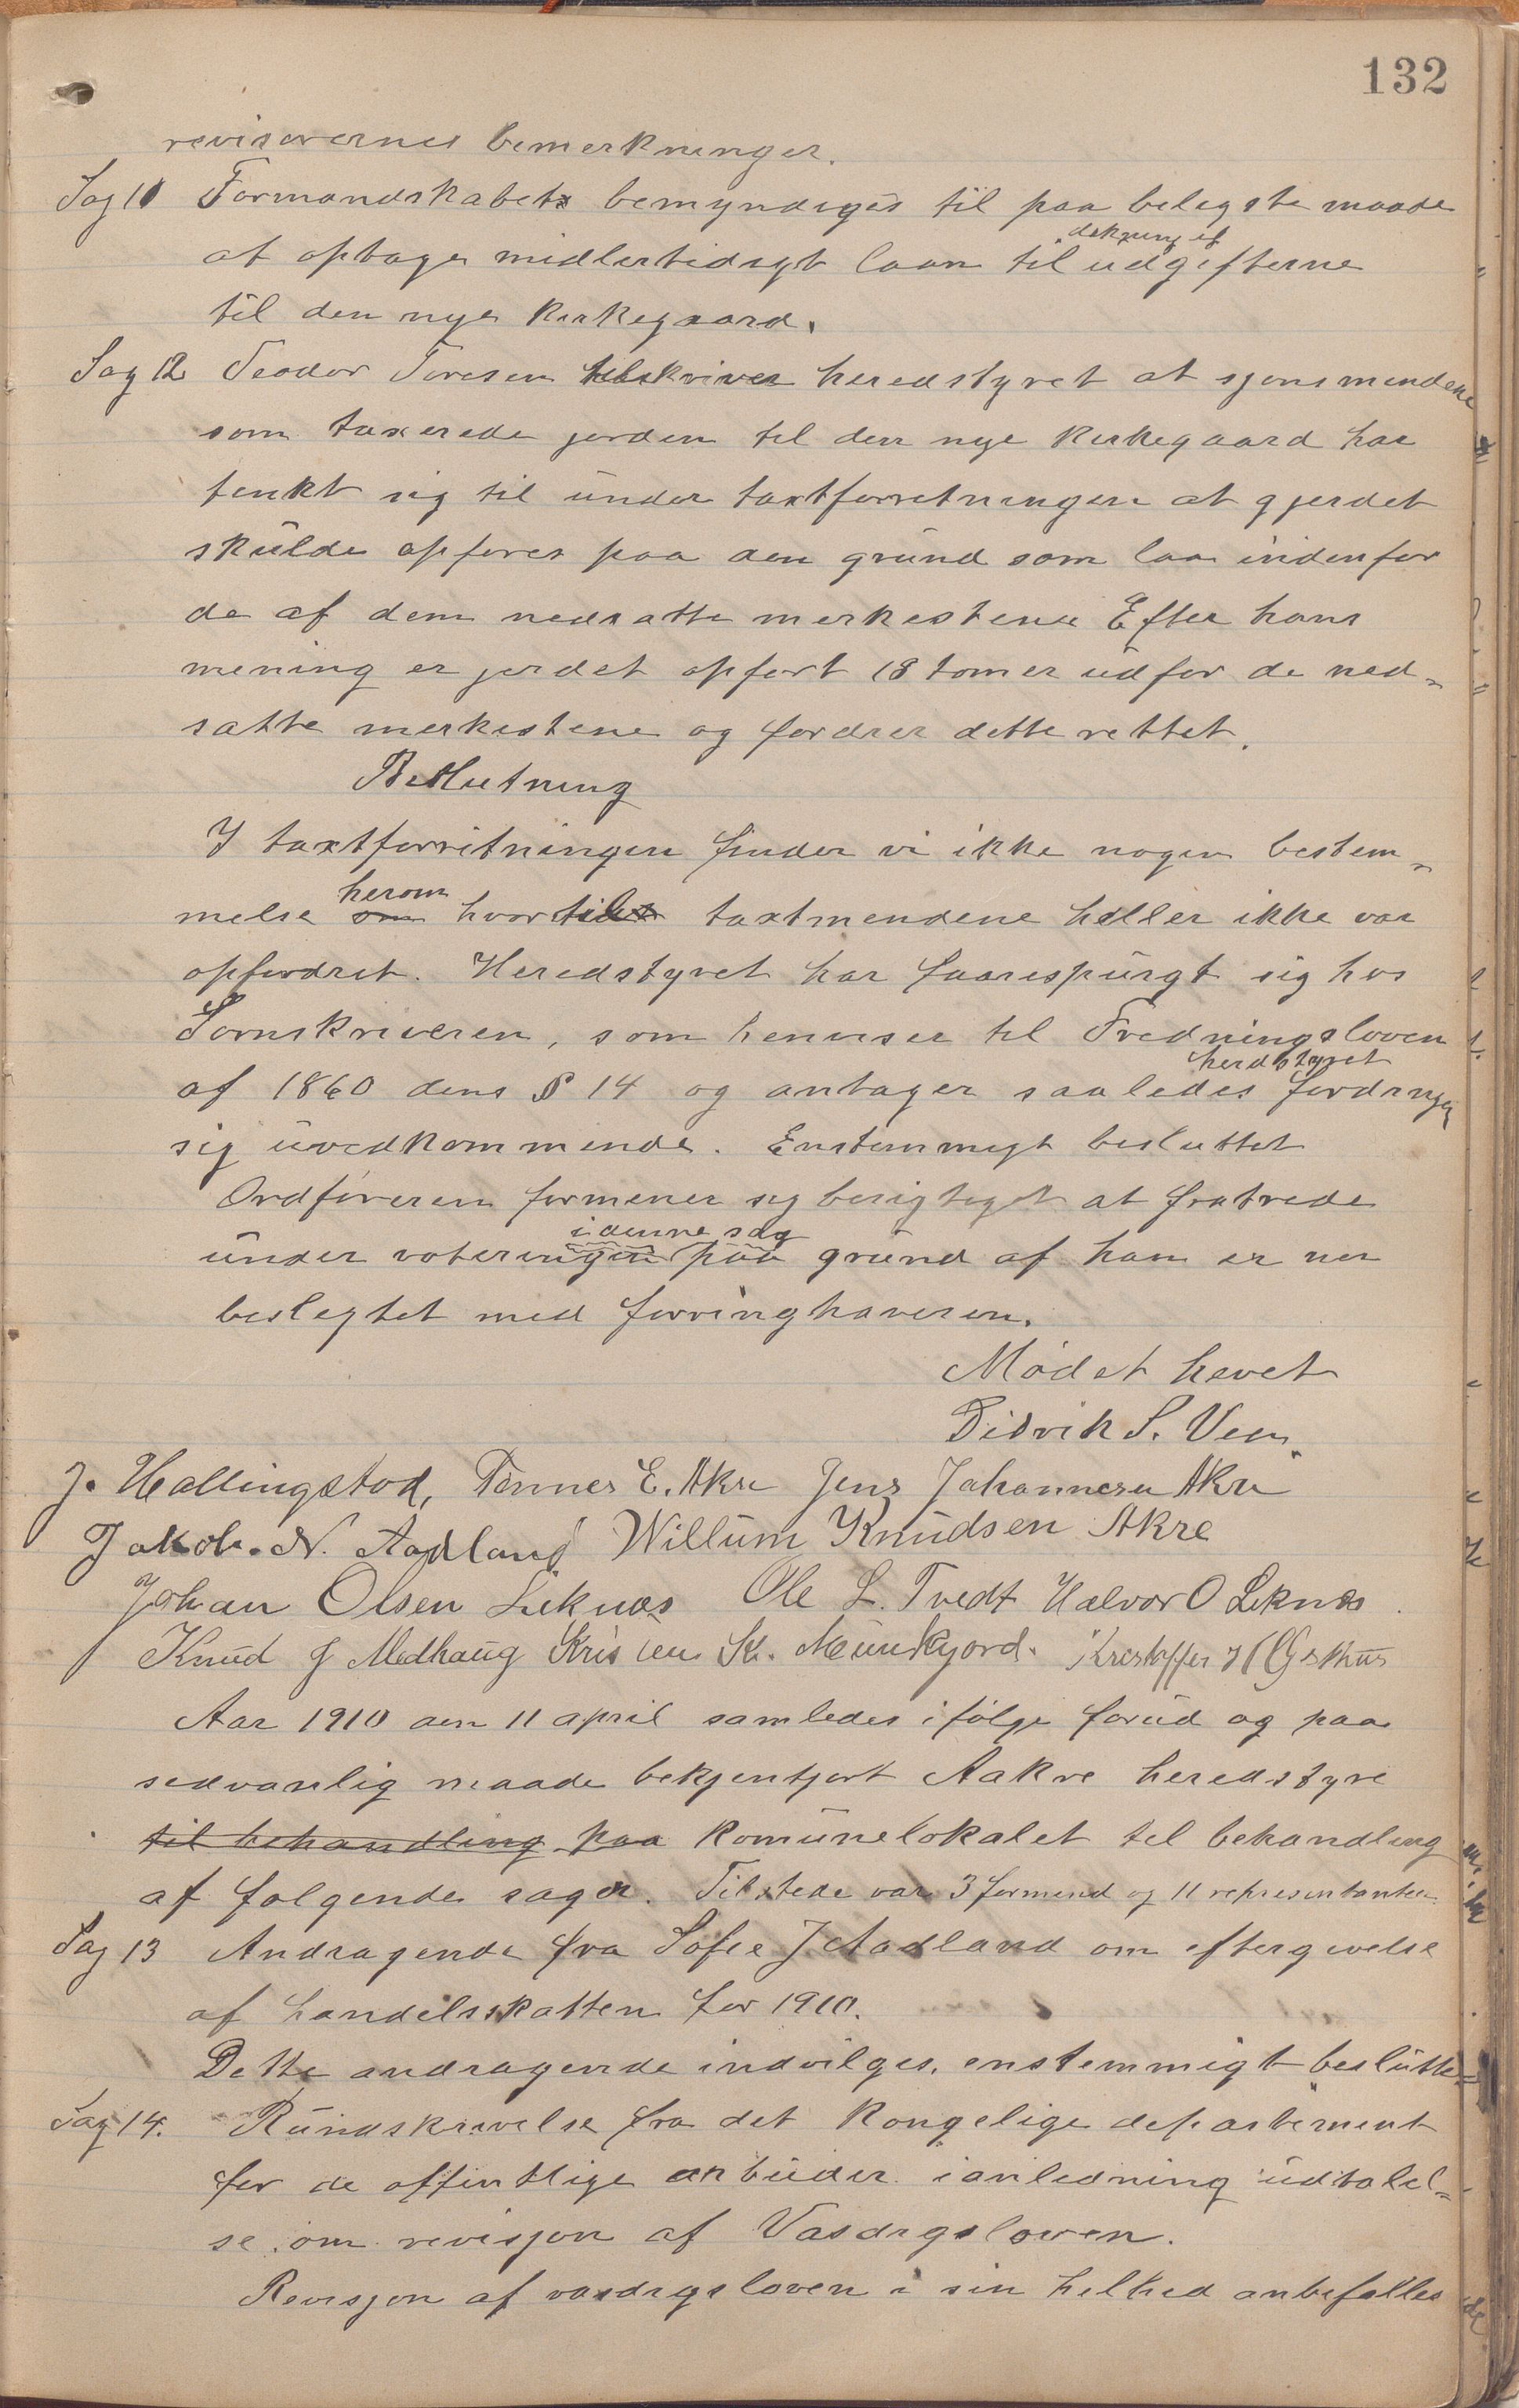 132
revisorernes bemerkninger.
Sag 11 Formandskabet bemyndiges til paa belegste maade
at optage midlertidigt laan til dekning af udgifterne
til den nye kirkegaard.
Sag 12 Teodor Toresen tilskriver heredstyret at sjonsmendene
som taxerede jorden til den nye kirkegaard har
tenkt sig til under taxtforretningen at gjerdet
skulde opføres paa den grund som laa indenfor
de af dem nedsatte merkestene Efter hans
mening er jerdet opført 18 tomer udfor de ned-
satte merkestene og fordrer dette rettet.
Beslutning
I taxtforretningen finder vi ikke nogen bestem-
melse om herom hvortil taxtmendene heller ikke var
opfordret. Heredstyret har faarespurgt sig hos
Sornskriveren, som henviser til Fredningsloven
af 1860 dens § 14 og antager saaledes herdstyret fordringen
sig uvedkommende. Enstemmigt besluttet
Ordføreren formener sig berigtiget at fratrede
under voteringen i denne sag paa grund af han er ner
beslegtet med forringhaveren.
Mødet hevet
Didrik S. Vem.
J. Hallingstad, Tønnes E. Akre Jens Johannesen Akre
Jakob. N. Aadland Willum Knudsen Akre
Johan Olsen Leknæs Ole L. Tvedt Halvor O Leknes
Knud J Medhaug Kristen K. Munkejord. Kristoffer
Aar 1910 den 11 april samledes ifølge forud og paa
sedvanlig maade bekjentjort Aakre heredstyre
til behandling paa komunelokalet til behandling
af følgende sager. Tilstede var 3 formend og 11 representanter.
Sag 13 Andragende fra Sofie J Aadland om eftergivelse
af handelsskatten for 1910.
Dette andragende indvilges, enstemmigt beslutte
Sag 14. Rundskrivelse fra det kongelige departement
for de offentlige arbeider i anledning udtalel-
se om revisjon af Vasdragsloven.
Revisjon af vasdragsloven i sin helhed anbefalles